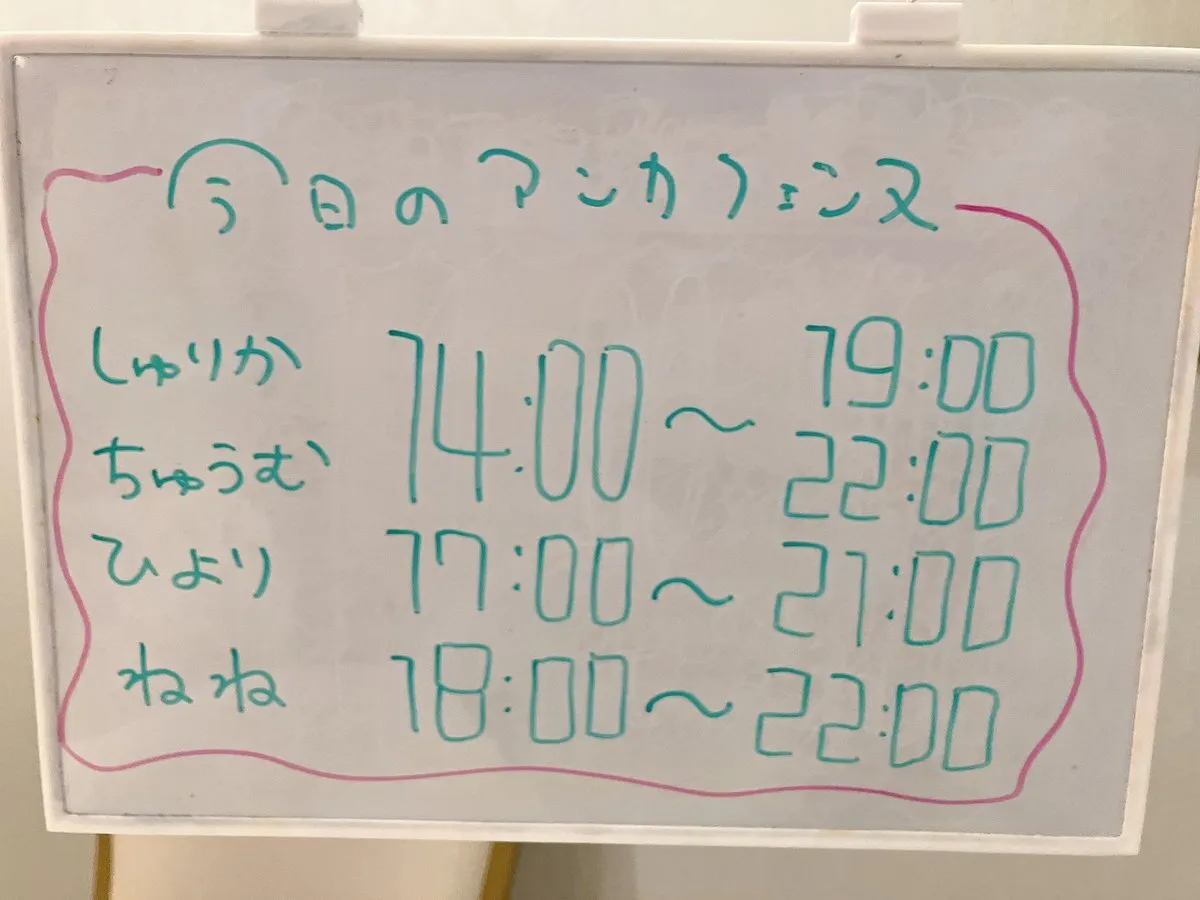 今日のアンカフェンヌ
しゅりか 14:00 ～ 19:00
ちゅうむ 22:00
ひより 17:00 ～ 21:00
ねね 18:00 ～ 22:00